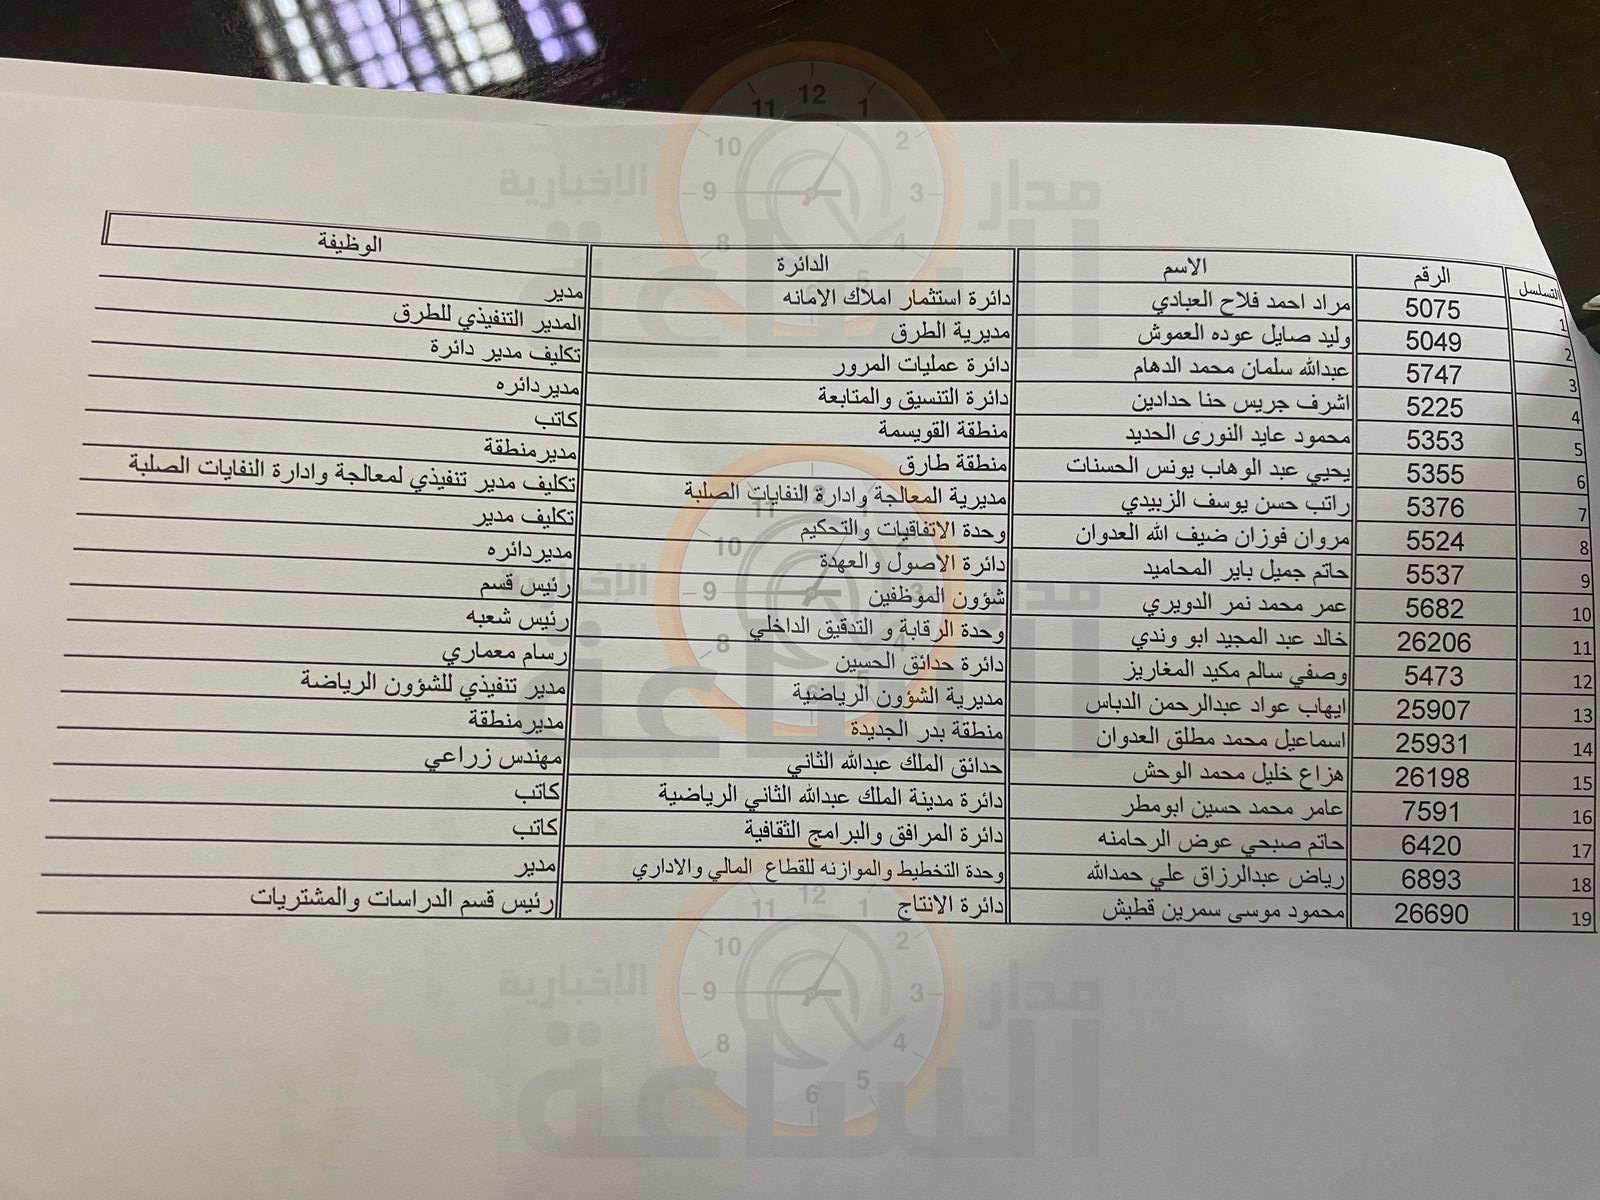 التسلسل الرقم الاسم الدائرة الوظيفة
1 5075 مراد احمد فلاح العبادي دائرة استثمار املاك الامانه مدير
2 5049 وليد صايل عوده العموش مديرية الطرق المدير التنفيذي للطرق
3 5747 عبدالله سلمان محمد الدهام دائرة عمليات المرور تكليف مدير دائرة
4 5225 اشرف جريس حنا حدادين دائرة التنسيق والمتابعة مديردائره
5 5353 محمود عايد النورى الحديد منطقة القويسمة كاتب
6 5355 يحيي عبد الوهاب يونس الحسنات منطقة طارق مديرمنطقة
7 5376 راتب حسن يوسف الزبيدي مديرية المعالجة وادارة النفايات الصلبة تكليف مدير تنفيذي لمعالجة وادارة النفايات الصلبة
8 5524 مروان فوزان ضيف الله العدوان وحدة الاتفاقيات والتحكيم تكليف مدير
9 5537 حاتم جميل باير المحاميد دائرة الاصول والعهدة مديردائره
10 5682 عمر محمد نمر الدويري شؤون الموظفين رئيس قسم
11 26206 خالد عبد المجيد ابو وندي وحدة الرقابة و التدقيق الداخلي رئيس شعبه
12 5473 وصفي سالم مكيد المغاريز دائرة حدائق الحسين رسام معماري
13 25907 ايهاب عواد عبدالرحمن الدباس مديرية الشؤون الرياضية مدير تنفيذي للشؤون الرياضة
14 25931 اسماعيل محمد مطلق العدوان منطقة بدر الجديدة مديرمنطقة
15 26198 هزاع خليل محمد الوحش حدائق الملك عبدالله الثاني مهندس زراعي
16 7591 عامر محمد حسين ابومطر دائرة مدينة الملك عبدالله الثاني الرياضية كاتب
17 6420 حاتم صبحي عوض الرحامنه دائرة المرافق والبرامج الثقافية كاتب
18 6893 رياض عبدالرزاق علي حمدالله وحدة التخطيط والموازنه للقطاع المالي والاداري مدير
19 26690 محمود موسى سمرين قطيش دائرة الانتاج رئيس قسم الدراسات والمشتريات
مدار الساعة الإخبارية
مدار الساعة الإخبارية
مدار الساعة الإخبارية